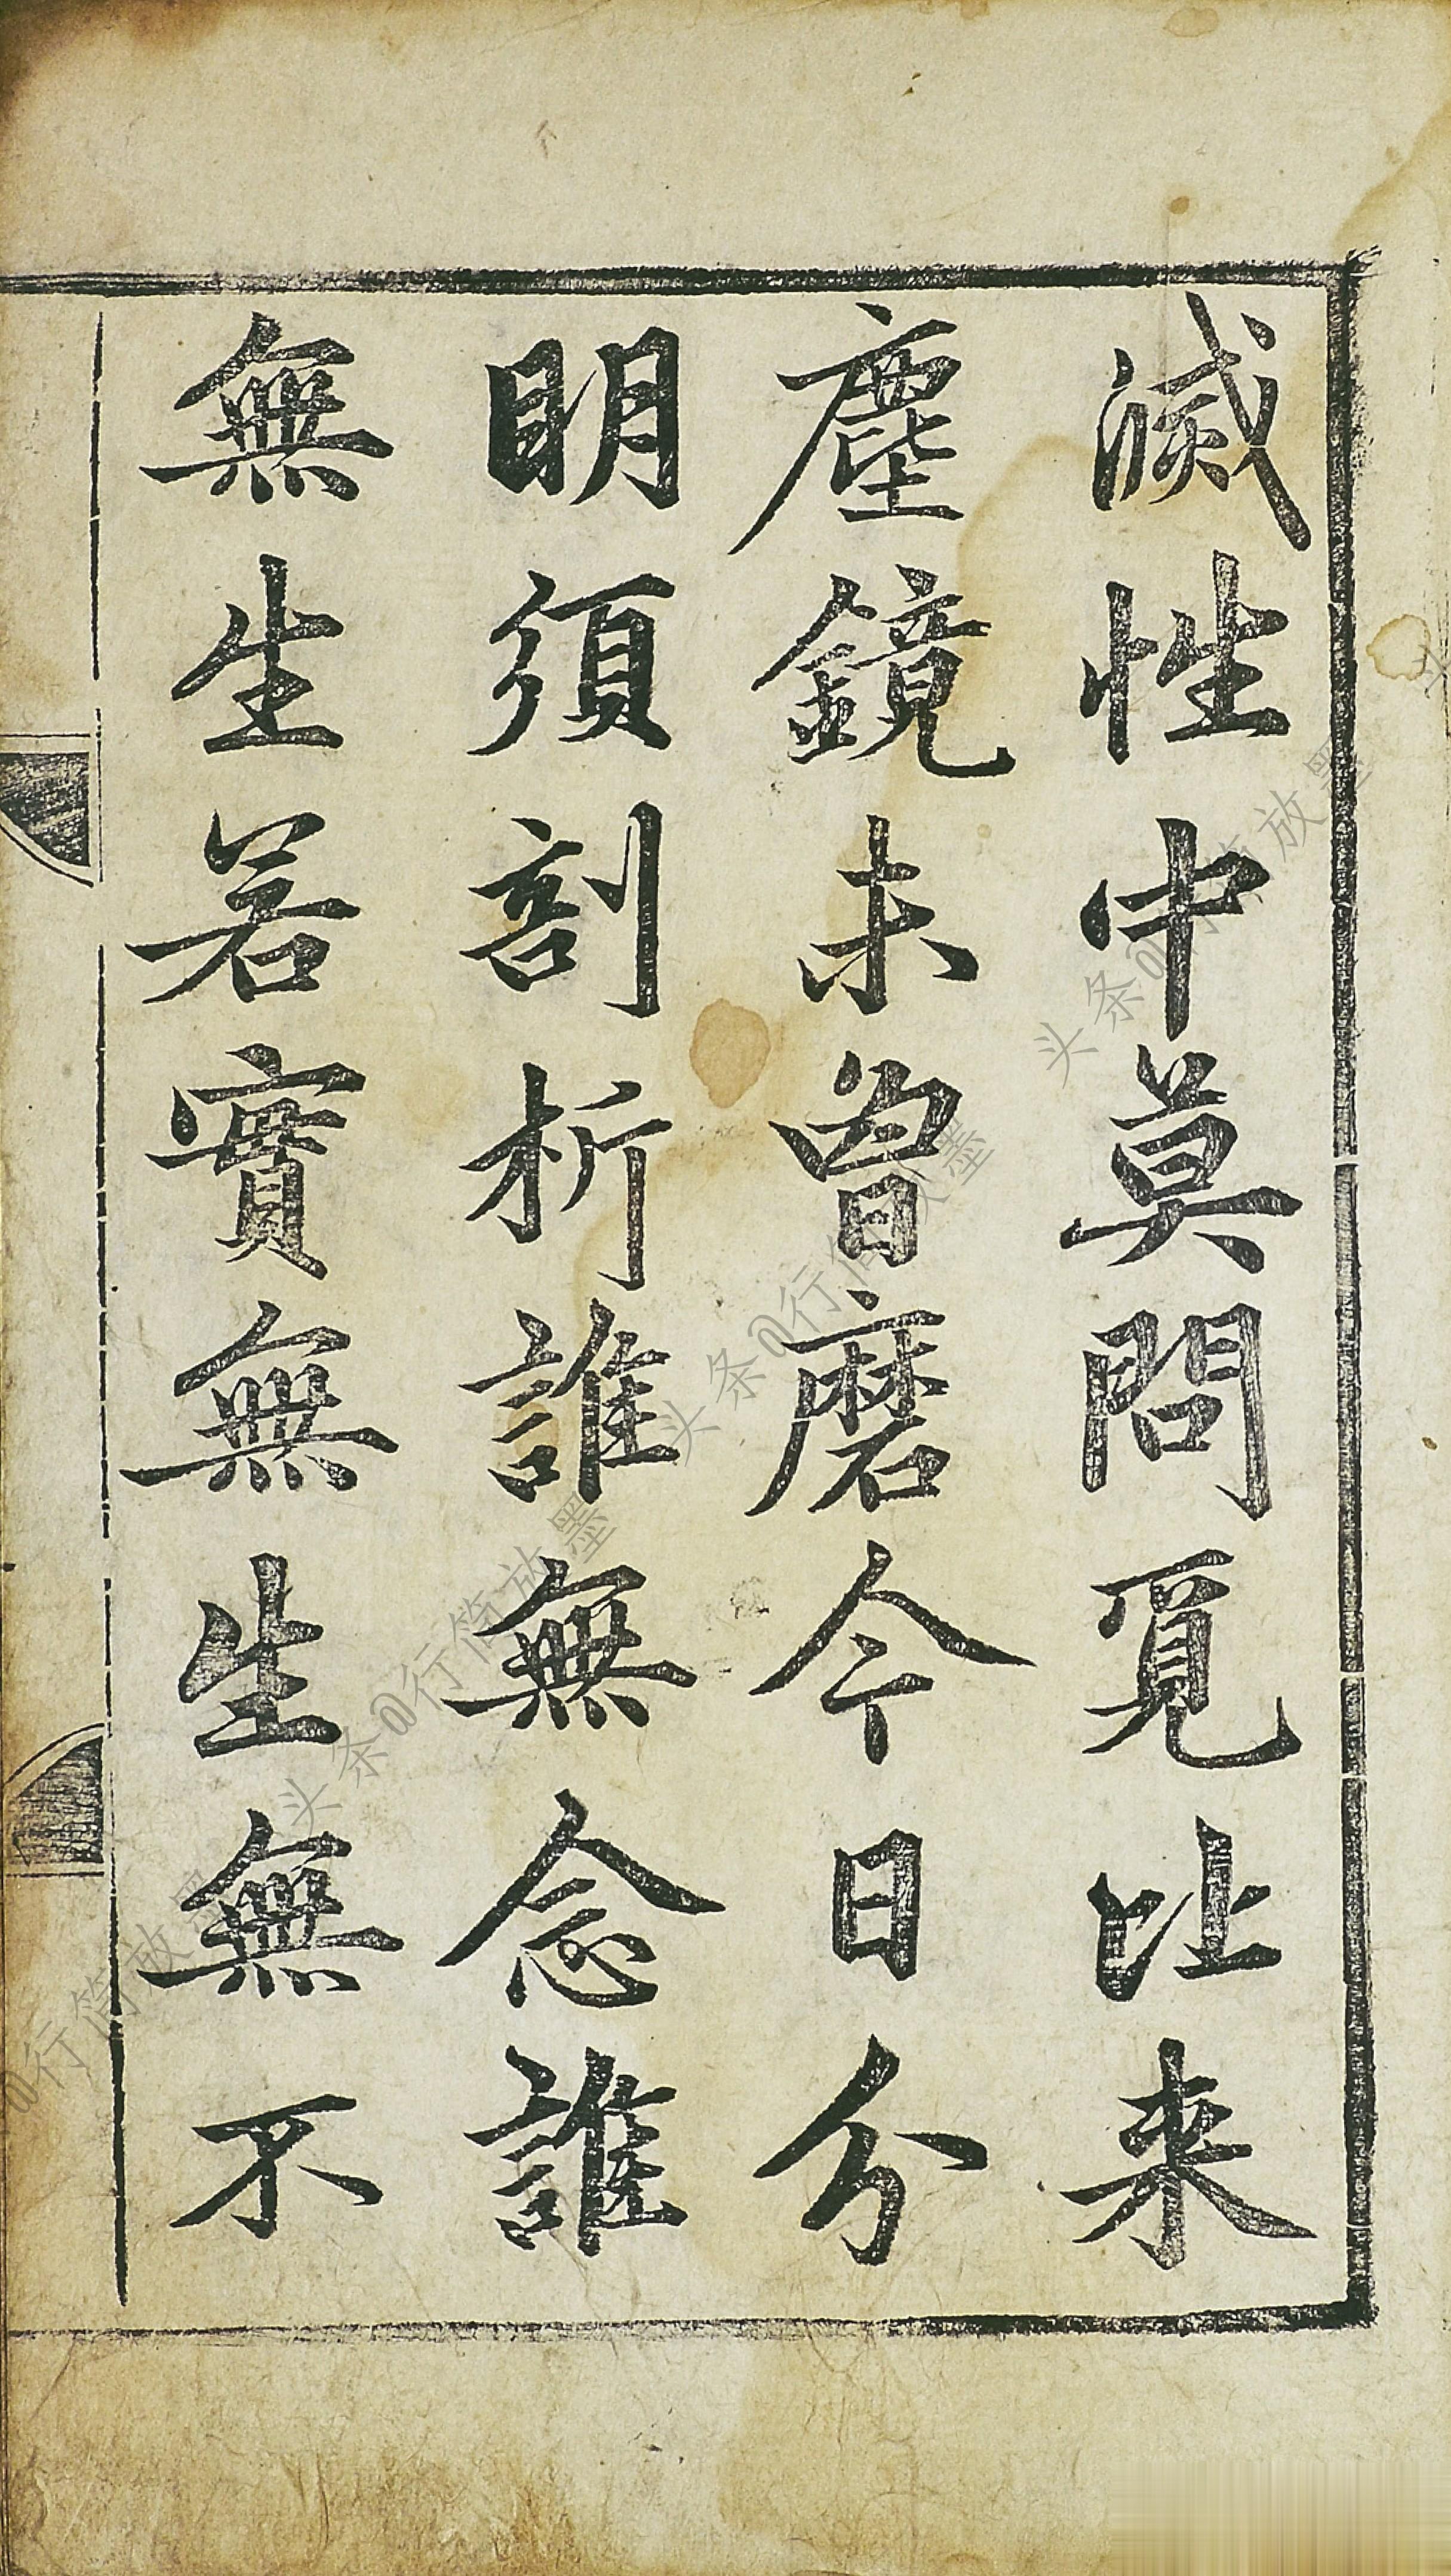 滅性中莫問覓比来
塵鏡未曾磨今日分
明須剖析誰無念誰
無生若實無生無不
头条@行简放墨
头条@行简放墨
头条@行简放墨
@行简放墨